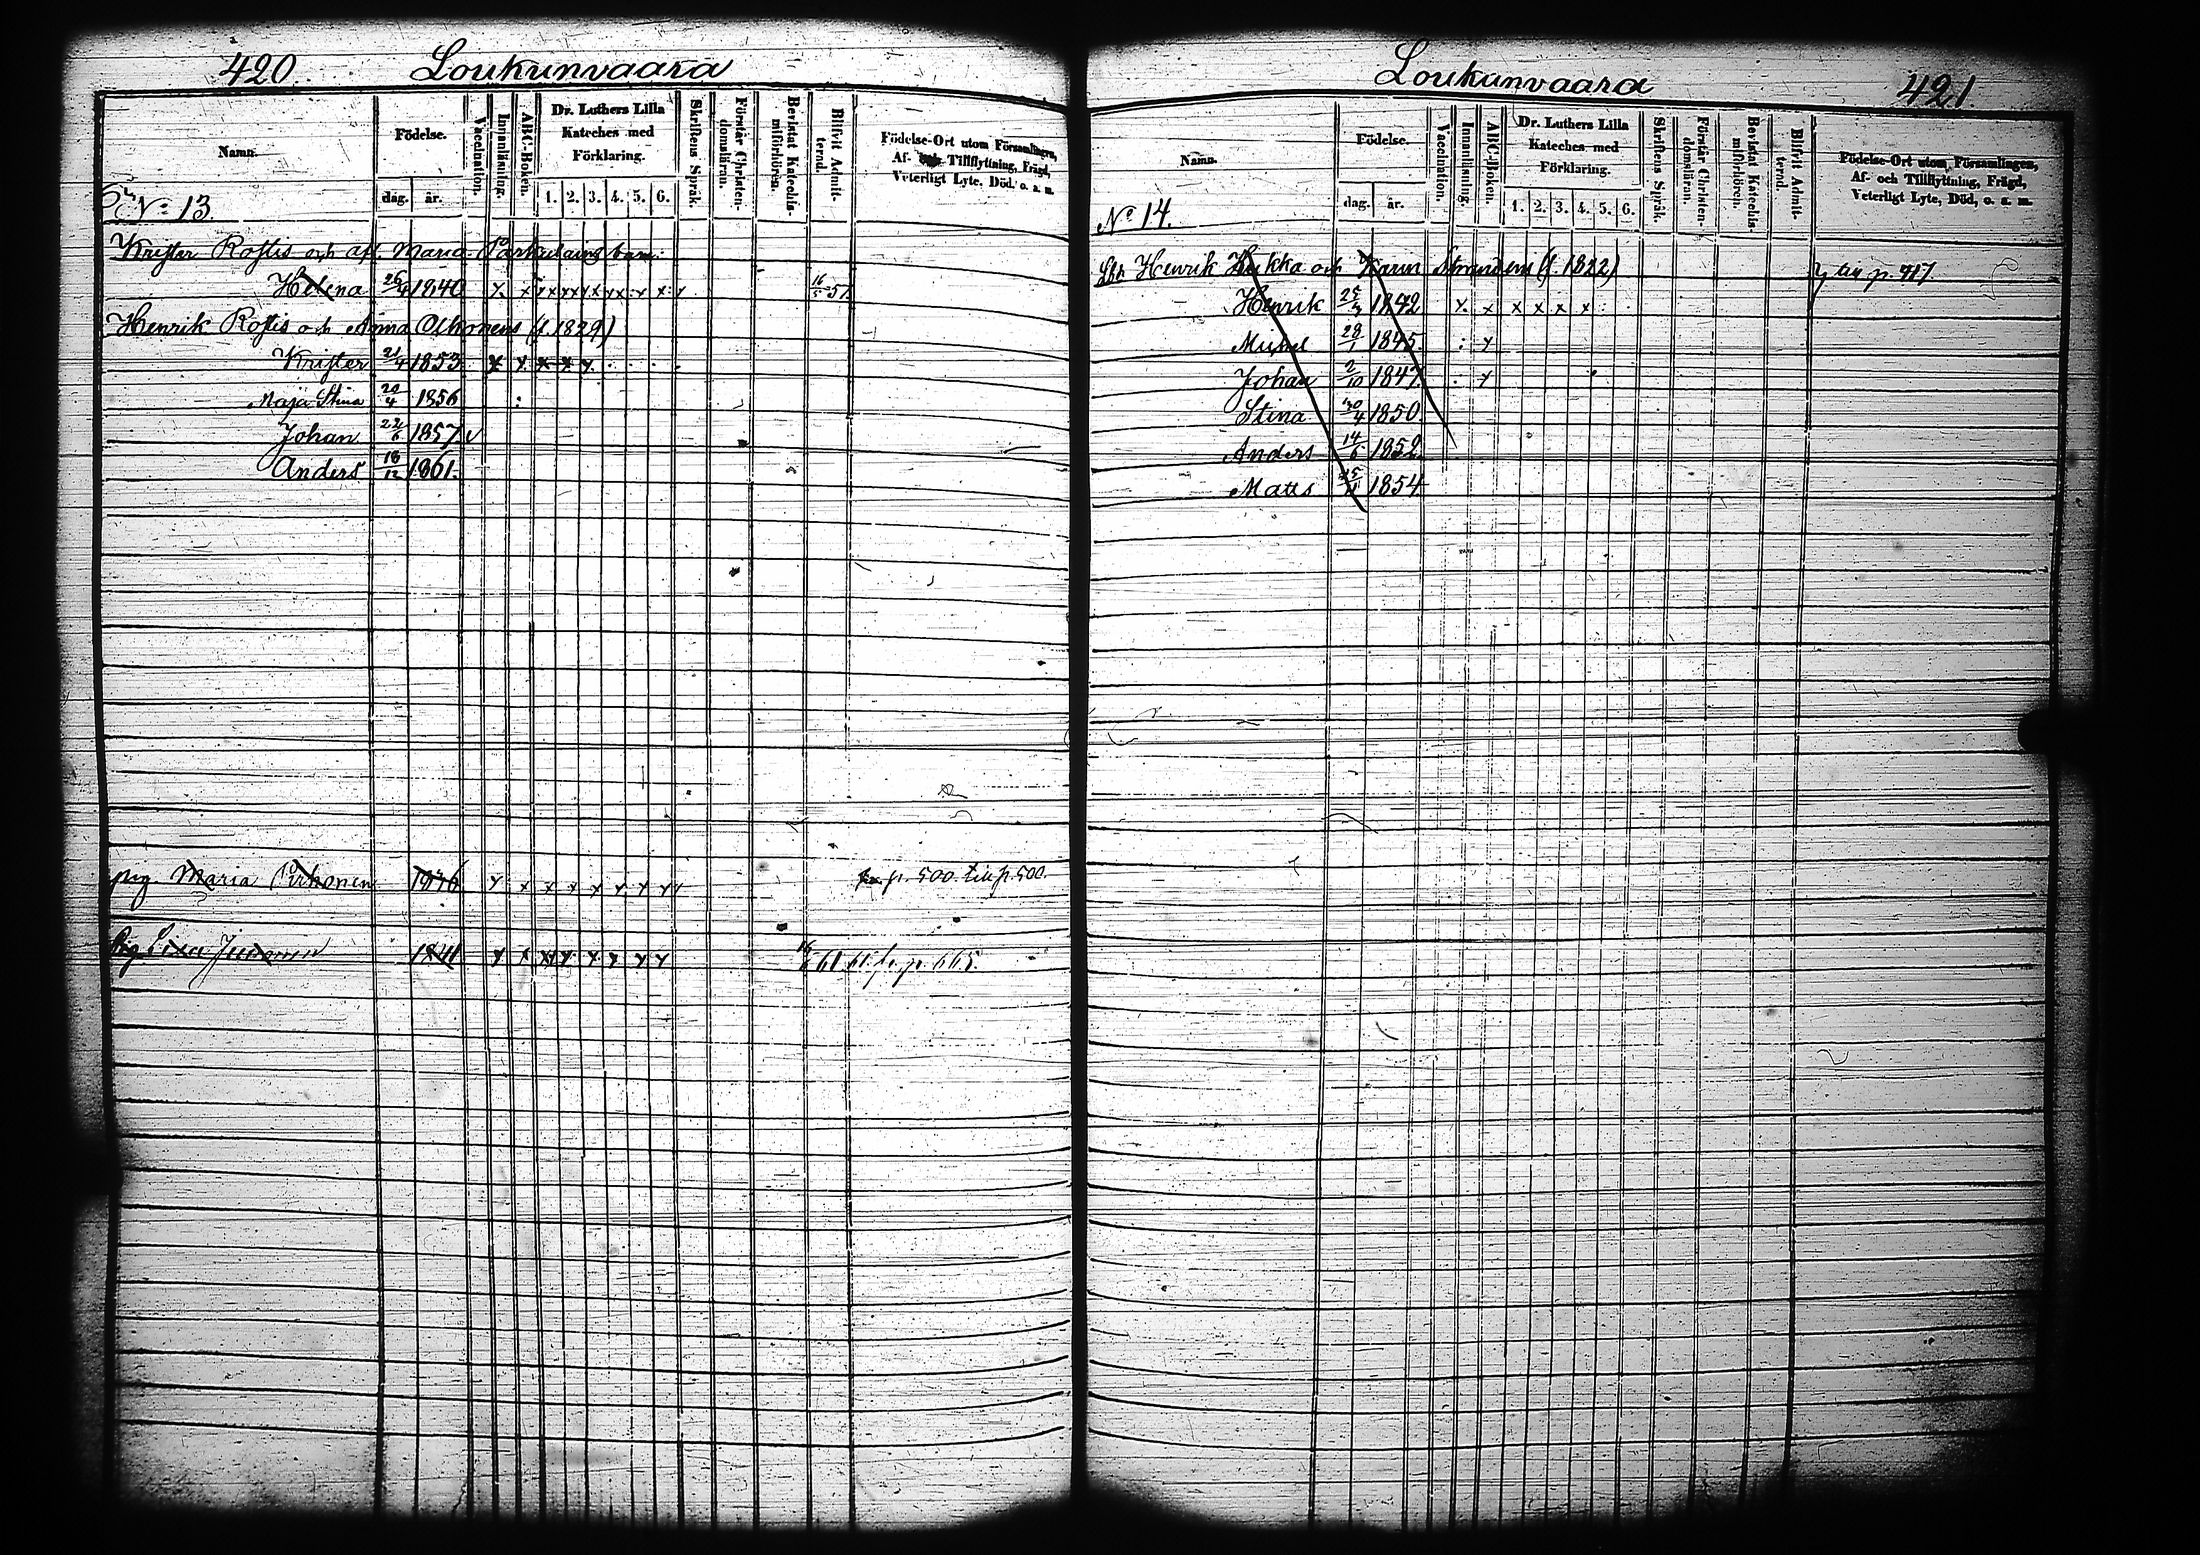 420. Loukunvaara
Namn.
Födelse.
dag. år.
Vaccination.
Innanläsning.
ABC-Boken.
Dr. Luthers Lilla
Kateches med
Förklaring.
1. 2. 3. 4. 5. 6.
Skriftens Språk.
Förstår Christen-
domsläran.
Bevistat Katechis-
misförhören.
Blifvit Admit-
terad.
Födelse-Ort utom Församlingen,
Af- Tillflyttning, Frägd,
Veterligt Lyte, Död, o. a. m.
No 13.
Krister Rostis och afl. Maria barn:
Helena 26 1840 x x x x x x x x x 16/5 57
Henrik Rostis och Anna Ahonens (f. 1829)
Krister 21/4 1853 x x x x x
Maja Stina 20/4 1856
Johan 22/6 1857 v
Anders 18/12 1861.
pig. Maria 1846 x x x x x x x x p. 500. till p. 500.
Pig 1841 x x x x x x x x 61 p. 665.
Loukunvaara 421
Namn.
Födelse.
dag. år.
Vaccination.
Innanläsning.
ABC-Boken.
Dr. Luthers Lilla
Kateches med
Förklaring.
1. 2. 3. 4. 5. 6.
Skriftens Språk.
Förstår Christen-
domsläran.
Bevistat Katechis-
misförhören.
Blifvit Admit-
terad.
Födelse-Ort utom Församlingen,
Af- och Tillflyttning, Frägd,
Veterligt Lyte, Död, o. a. m.
No 14.
Henrik Hukka och Karin (f. 1822) till p. 417
Henrik 25 1842 x x x x x x
Michel 29/1 1845. x
Johan 2/10 1847 x
Stina 30/4 1850
Anders 14/6 1852
Matts 25/11 1854